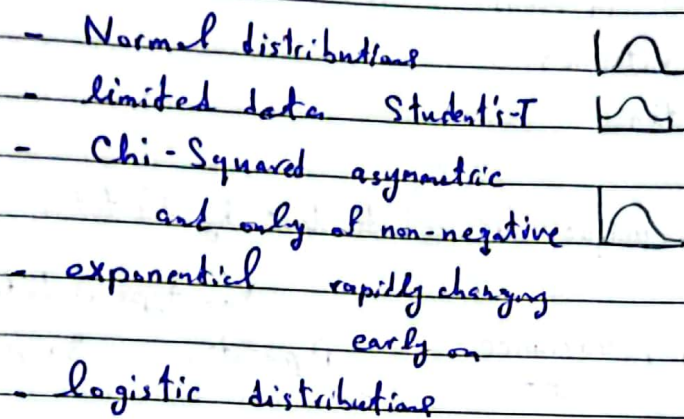 - Normal distributions
- limited data Student's-T
- Chi-Squared asymmetric
and only of non-negative
- exponential rapidly changing
early on
- logistic distributions